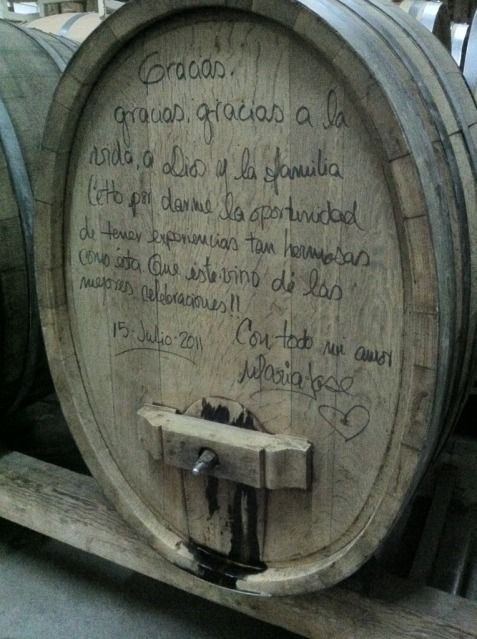 Gracias,
gracias, gracias a la
vida, a Dios y la familia
Cetto por darme la oportunidad
de tener experiencias tan hermosas
como esta Que este vino dé las
mejores celebraciones!!
15-Julio-2011
Con todo mi amor
Maria Jose